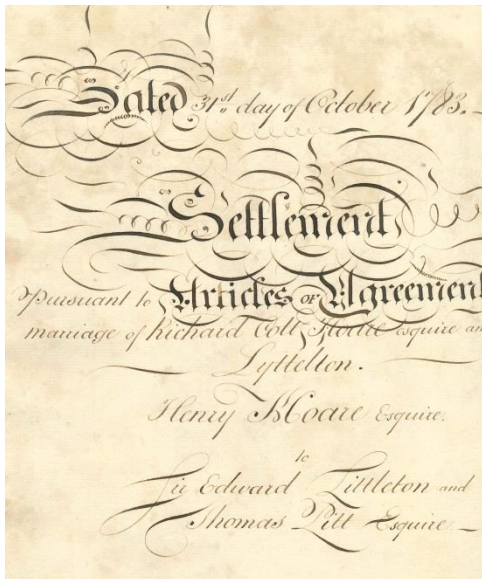 Dated 31st day of October 1783.
Settlement
Pursuant to Articles of Agreement
marriage of Richard Colt Hoare esquire an
Lyttelton.
Henry Hoare Esquire.
to
Sir Edward Littleton and
Thomas Pitt Esquire